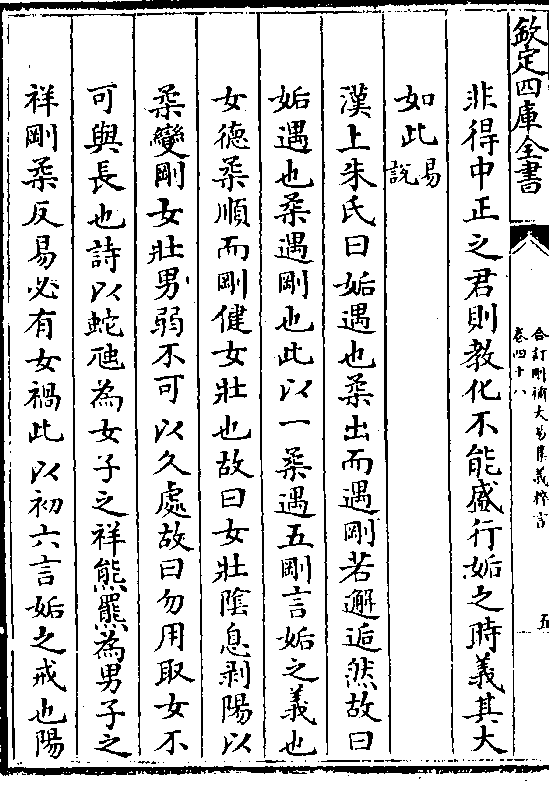 欽定四庫全書
合訂刪補大易集義粹言
卷四十八
五
非得中正之君則教化不能盛行姤之時義其大
如此易說
漢上朱氏曰姤遇也柔出而遇剛若邂逅然故曰
姤遇也柔遇剛也此以一柔遇五剛言姤之義也
女德柔順而剛健女壯也故曰女壯陰息剥陽以
柔變剛女壯男弱不可以久處故曰勿用取女不
可與長也詩以蛇虺為女子之祥熊羆為男子之
祥剛柔反易必有女禍此以初六言姤之戒也陽